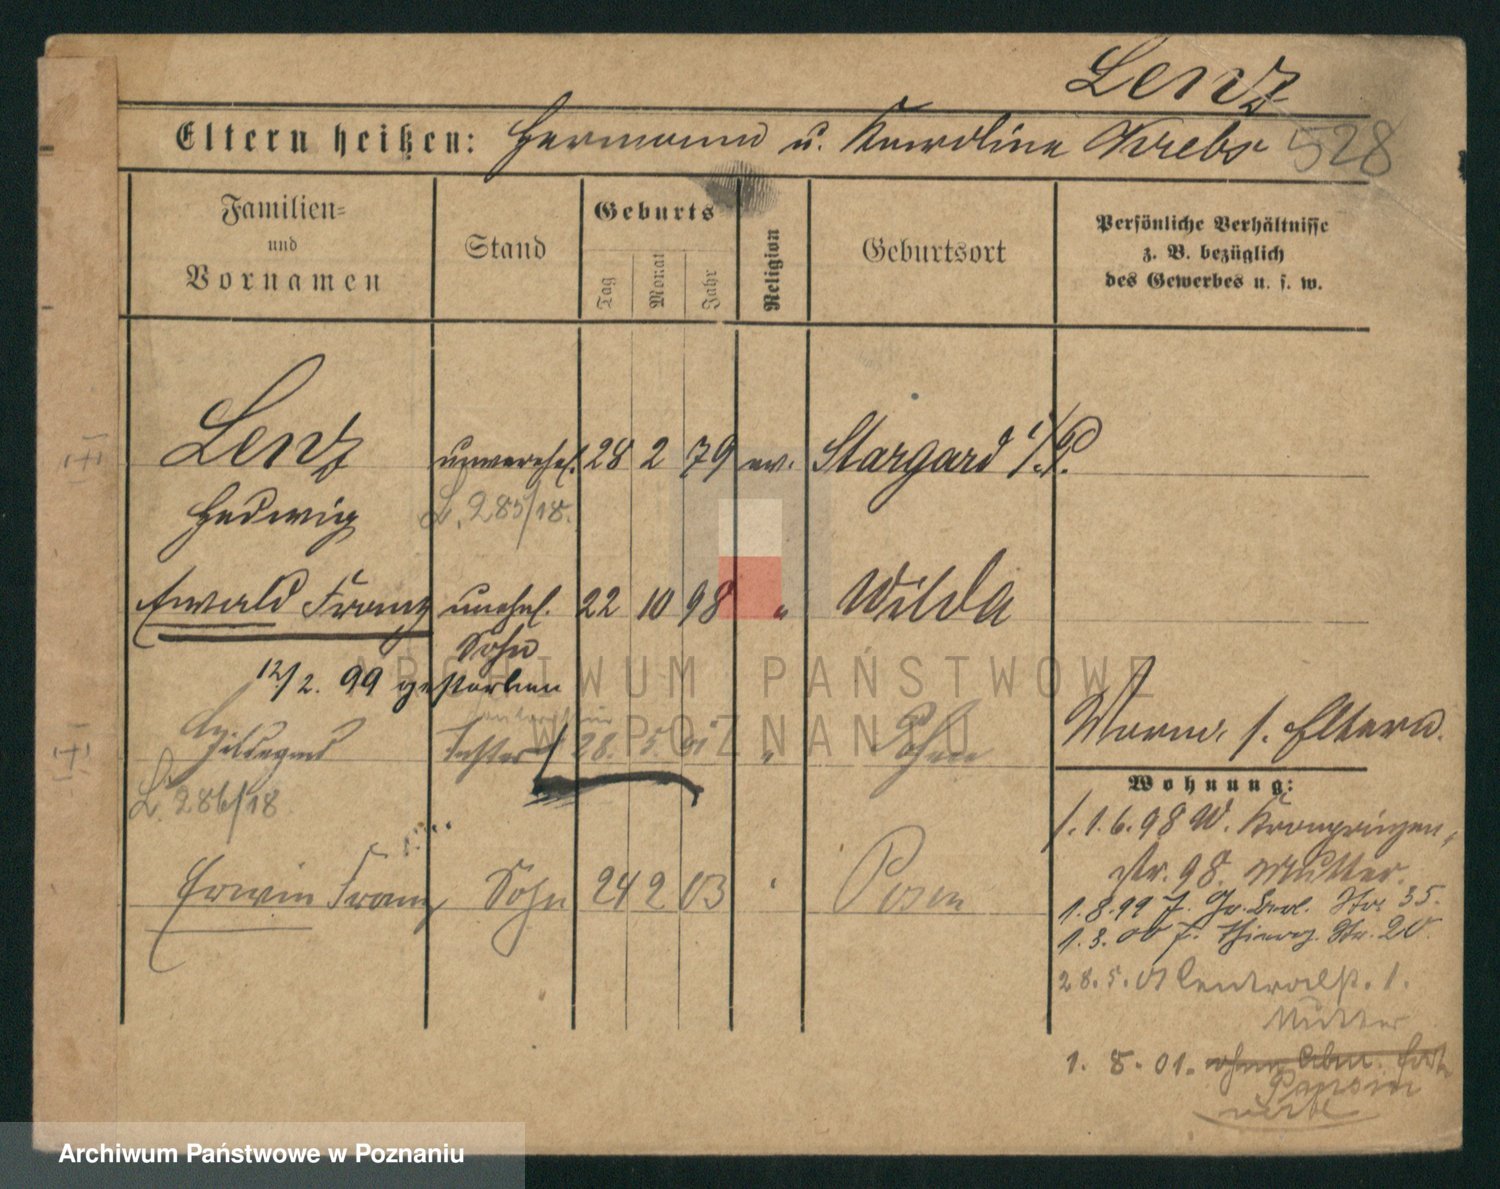 Lenz
Eltern heißen: Hermann u. Karoline Krebs 528
Familien- und Vornamen
Stand
Geburts
Tag Monat Jahr
Religion
Geburtsort
Persönliche Verhältnisse
z. B. bezüglich
des Gewerbes u. s. w.
Lenz unverehel. 28 2 79 ev. Stargard i/P.
Hedwig L. 285/18.
Ewald Franz unehel. 22 10 98 " Wilda
Sohn
12/2. 99 gestorben
Hildegard Tochter 28. 5. 01 "
L. 286/18
Erwin Franz Sohn 24 2 03 " Posen
s. Eltern.
Wohnung:
1.6.98 W. Kronprinzen
Str. 98. Mutter.
1.8.99 Gr. Berl. Str 35.
1.3.00 Str. 20.
28.5.01 Centralst. 1.
Mutter
1. 8. 01.
ARCHIWUM PAŃSTWOWE
W POZNANIU
Archiwum Państwowe w Poznaniu